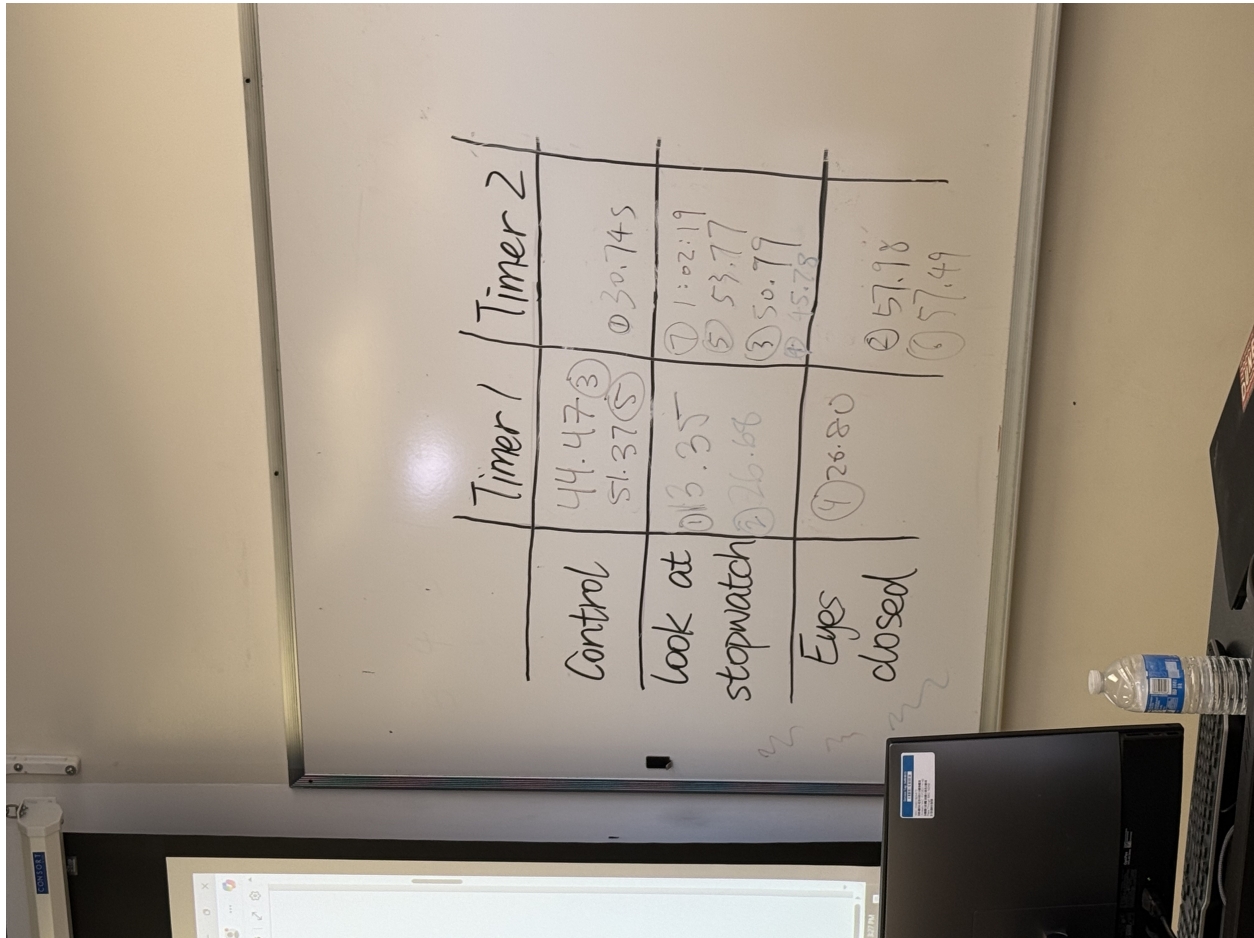 Timer 1
Timer 2
Control
44.47 ③
51.37 ⑤
① 30.74s
Look at
stopwatch
① 13.35
② 26.68
⑦ 1:02:19
⑤ 53.77
③ 50.79
④ 45.28
Eyes
closed
④ 26.80
② 57.98
⑥ 57.49
CONSORT